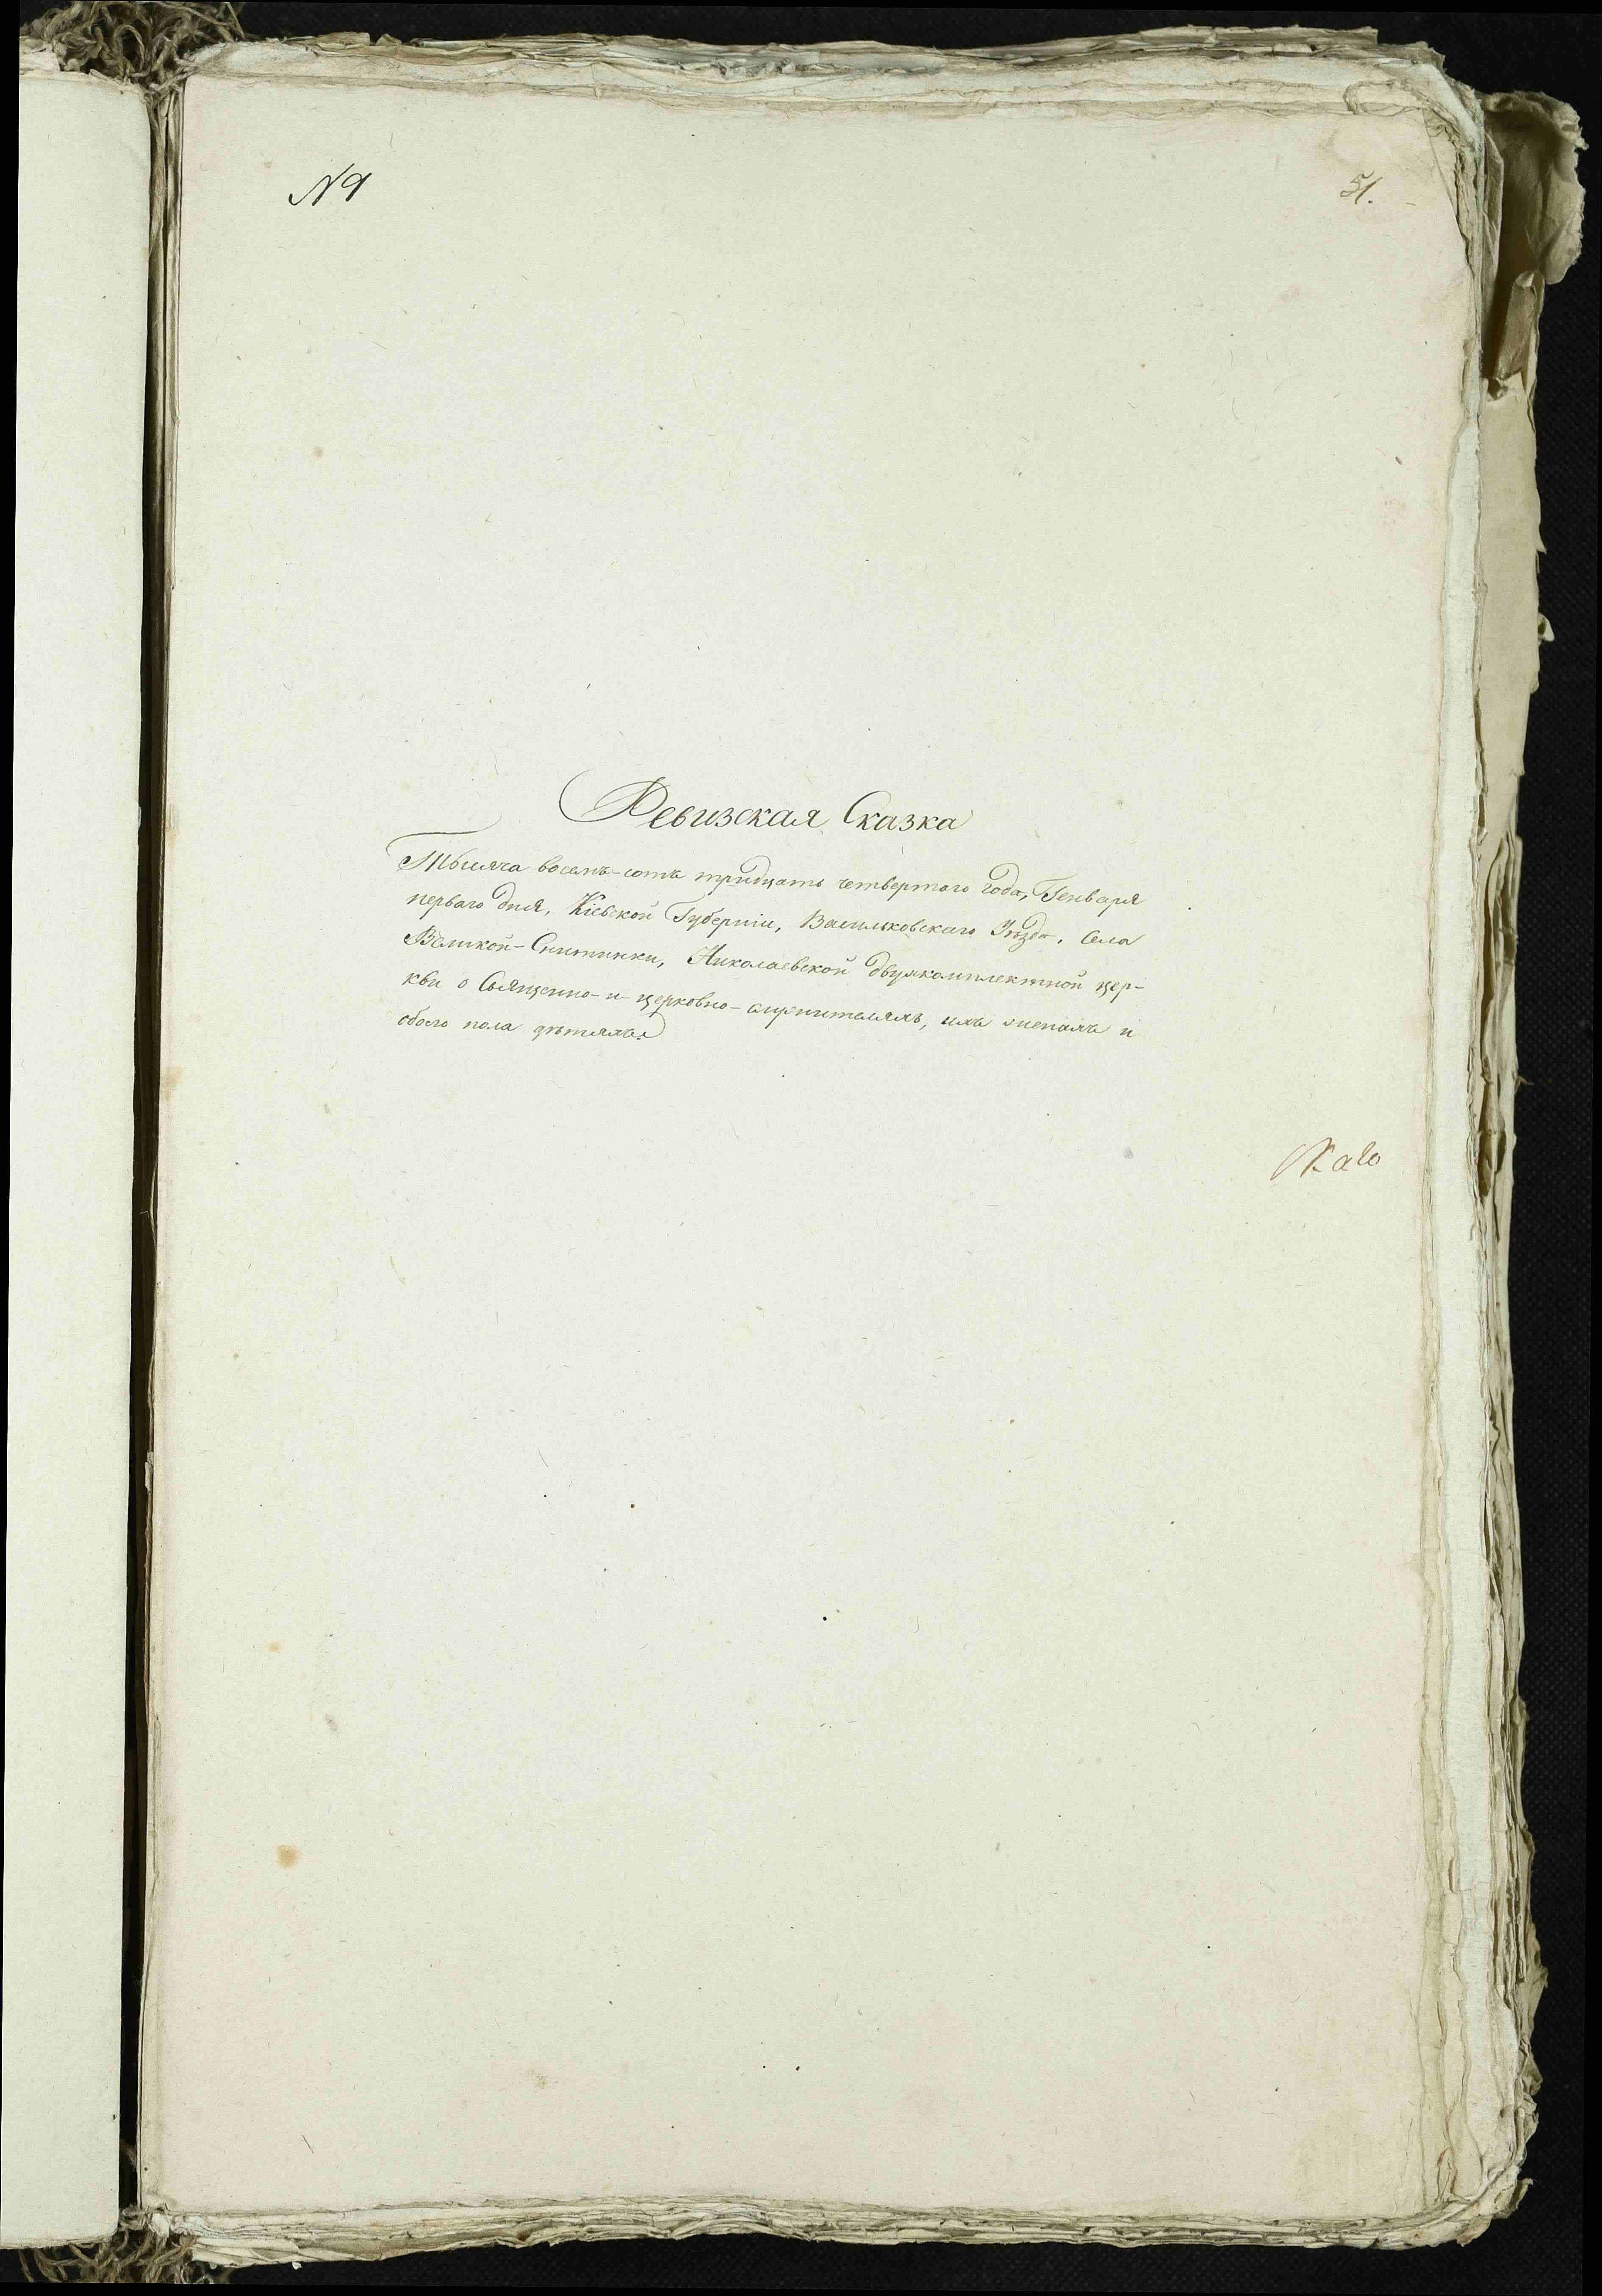 № 9
51.
Ревизская Сказка
Тысяча восемъ-сотъ тридцать четвертаго года, Генваря
перваго дня, Кіевской Губерніи, Васильковскаго Уѣзда, села
Великой-Снитинки, Николаевской двукомплектной цер-
кви о Священно-и-церковно-служителяхъ, ихъ женахъ и
обоего пола дѣтяхъ.